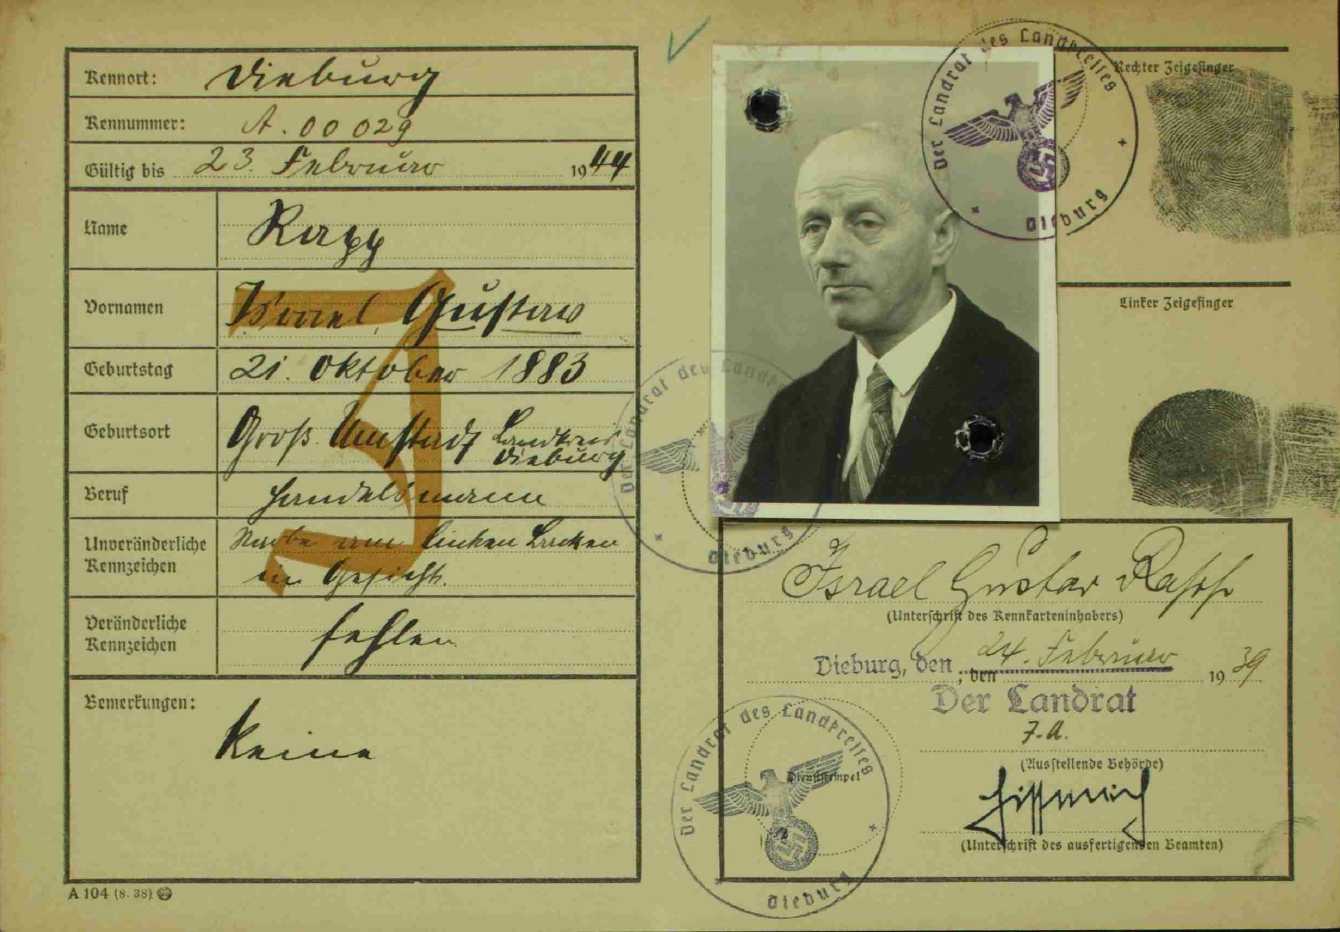 Kennort: Dieburg
Kennummer: A. 00029
Gültig bis 23. Februar 1944
Name Rapp
Vornamen Israel Gustav
Geburtstag 21. Oktober 1883
Geburtsort Groß Umstadt Landkreis
Dieburg
Beruf Handelsmann
Unveränderliche Kennzeichen Narbe am linken Backen
im Gesicht.
Veränderliche Kennzeichen fehlen
Bemerkungen:
Keine
A 104 (8. 38)
J
Der Landrat des Landkreises
Dieburg
Rechter Zeigefinger
Linker Zeigefinger
Der Landrat des Landkreises
Dieburg
Israel Gustav Rapp
(Unterschrift des Kennkarteninhabers)
Dieburg, den 24. Februar 1939
, den
Der Landrat
J.A.
(Ausstellende Behörde)
Dienststempel
Der Landrat des Landkreises
Dieburg
(Unterschrift des ausfertigenden Beamten)